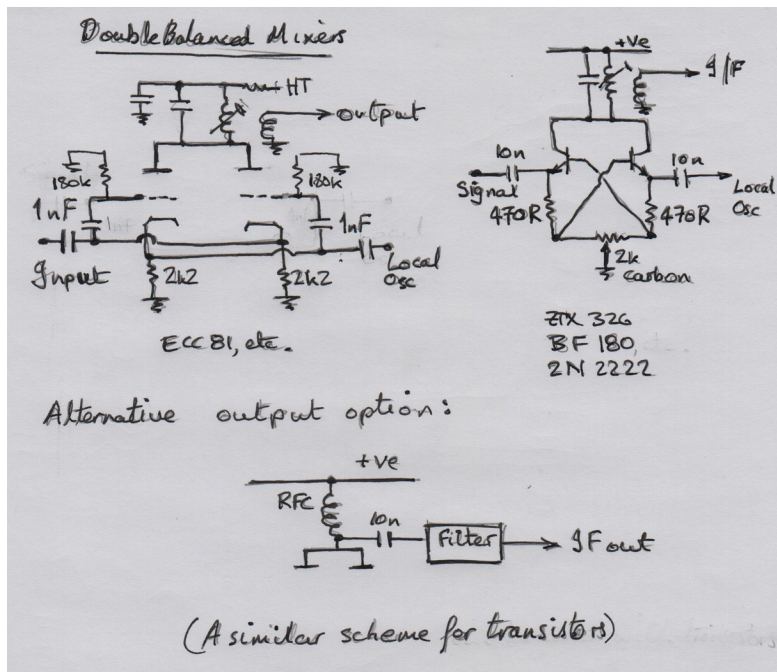 Double Balanced Mixers
HT
output
180k
180k
1nF
1nF
Input
2k2
2k2
Local
Osc
ECC 81, etc.
+ve
I/F
10n
10n
Signal
Local
Osc
470R
470R
2k
carbon
ZTX 326
BF 180,
2N 2222
Alternative output option:
+ve
RFC
10n
Filter
IF out
(A similar scheme for transistors)